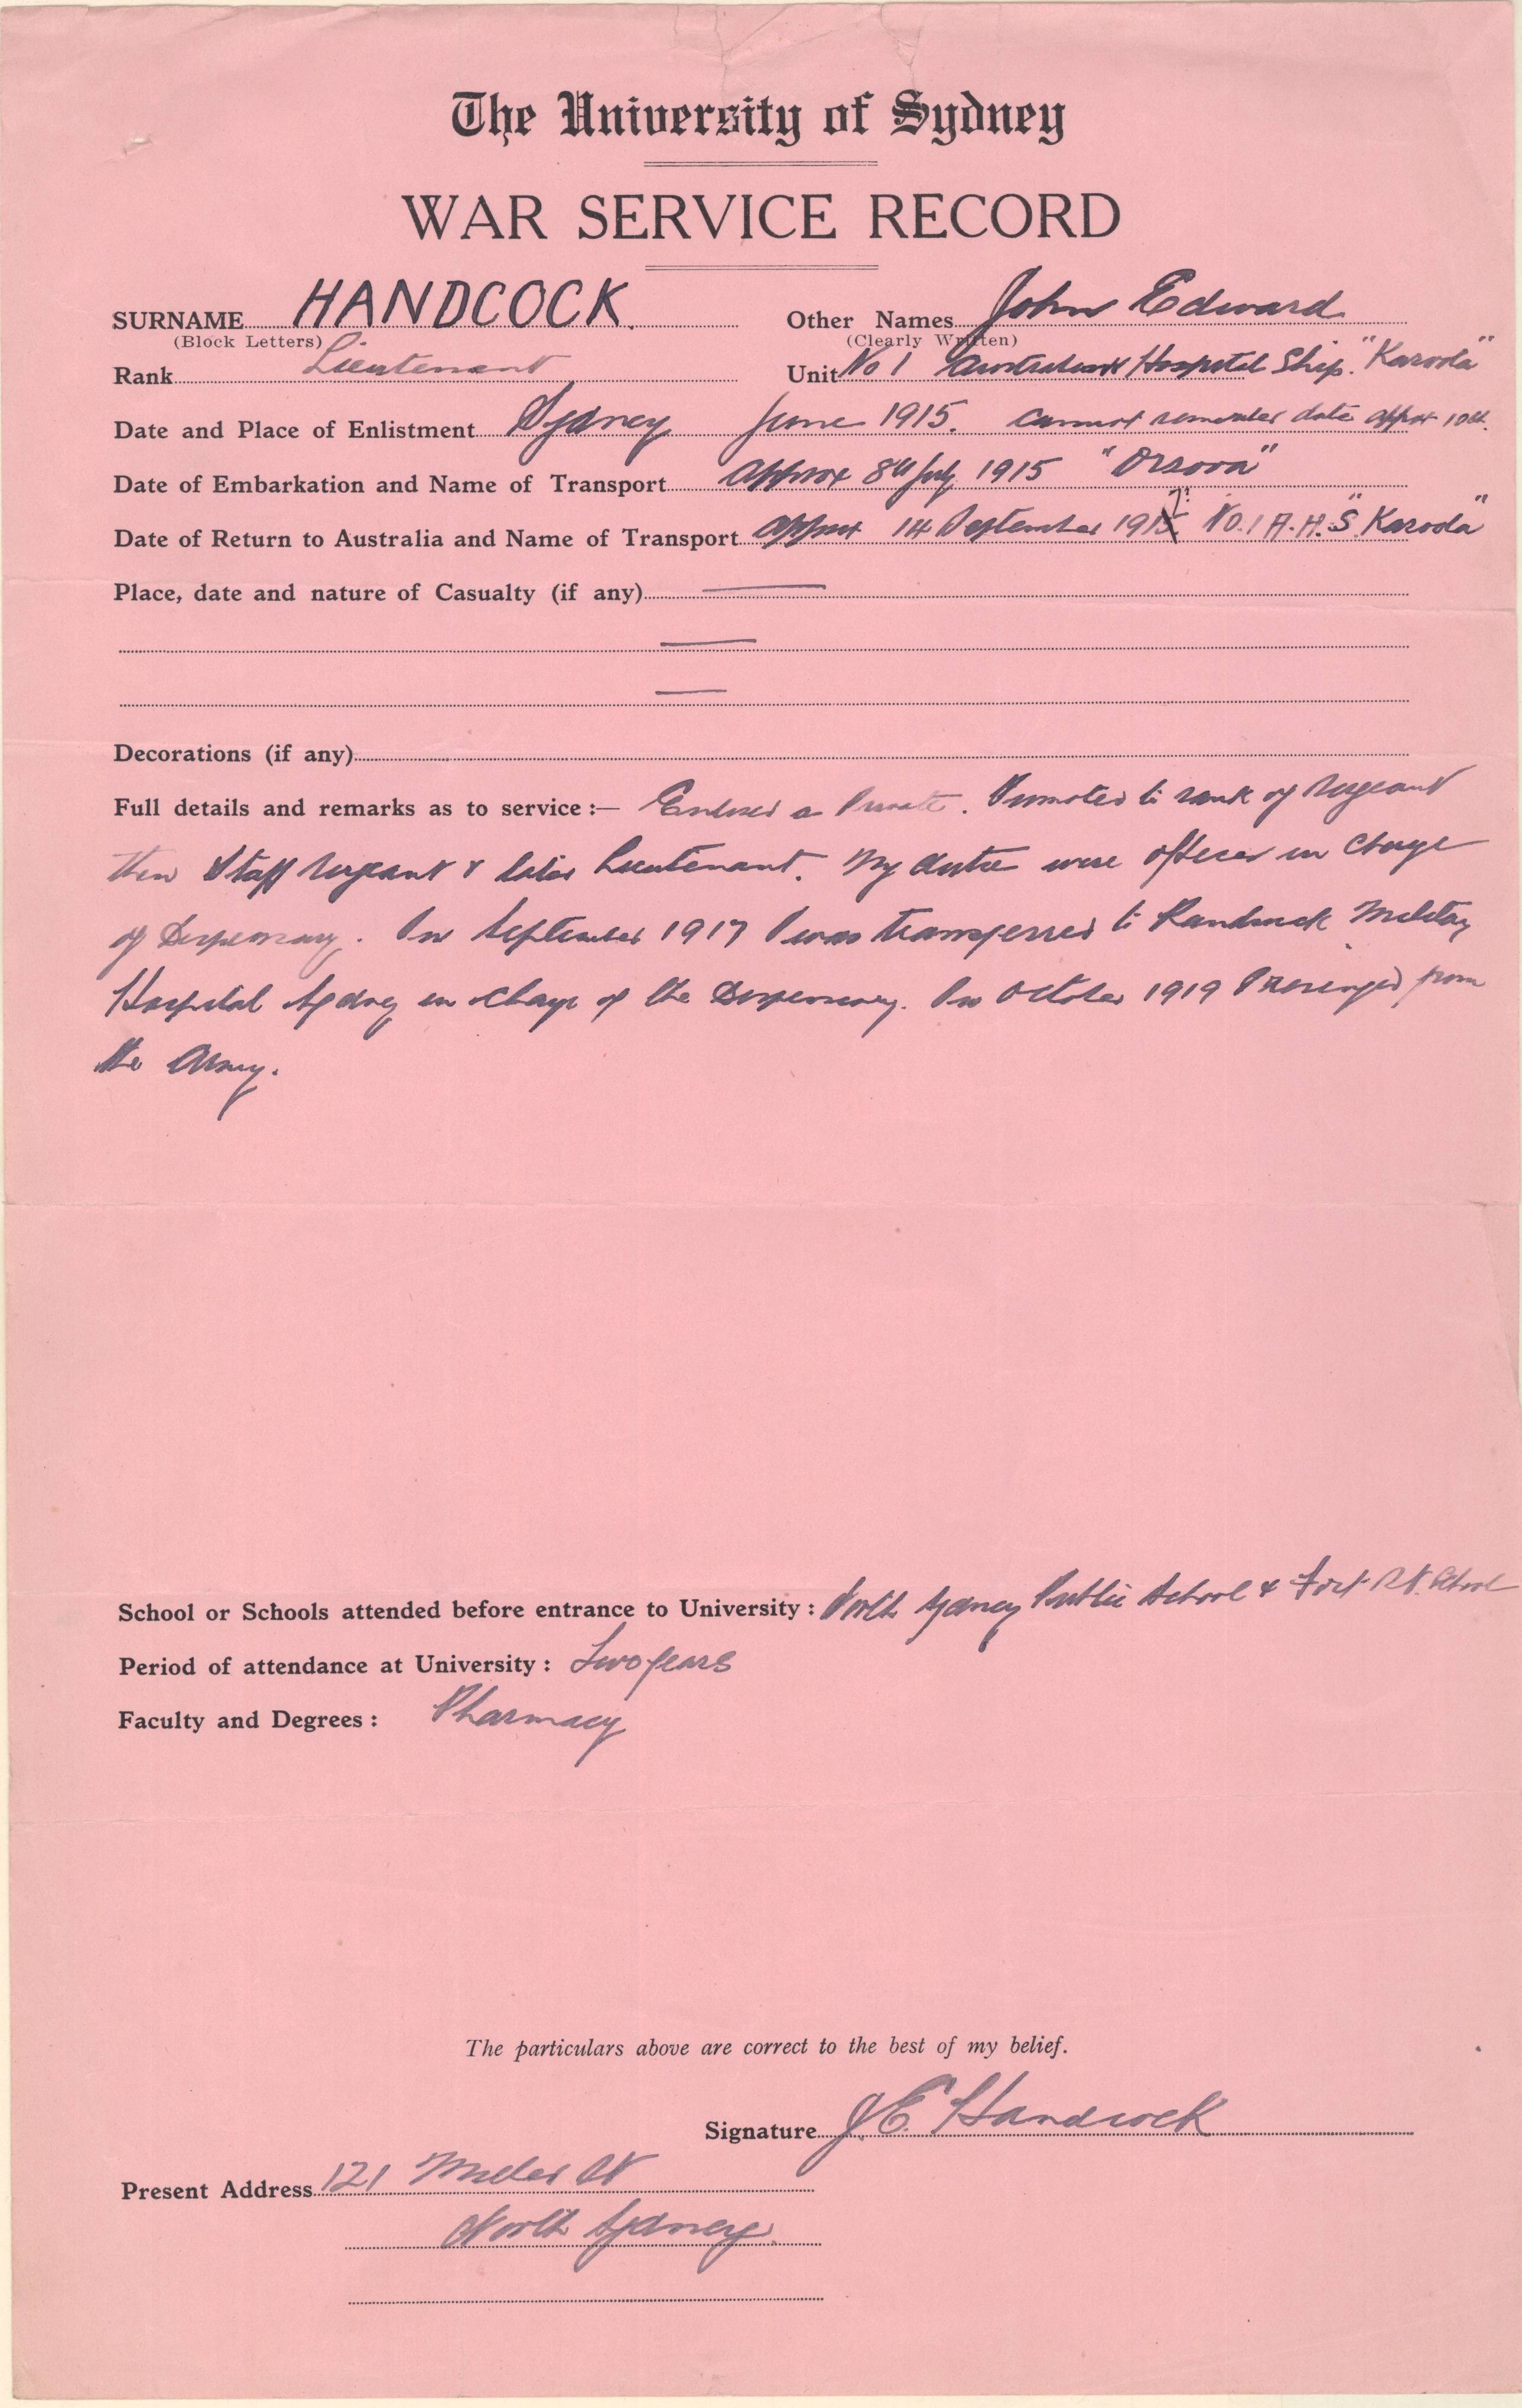 The University of Sydney
WAR SERVICE RECORD
SURNAME HANDCOCK. Other Names John Edward
(Block Letters) (Clearly Written)
Rank Lieutenant Unit No 1 Australian Hospital Ship "Karoola"
Date and Place of Enlistment Sydney June 1915. cannot remember date approx 10th.
Date of Embarkation and Name of Transport approx 8th July 1915 "Orsova"
Date of Return to Australia and Name of Transport approx 14 September 1917? No. 1 A.H.S "Karoola"
Place, date and nature of Casualty (if any) —
—
—
Decorations (if any)
Full details and remarks as to service :— Enlisted a Private. Promoted to rank of Sergeant
then Staff Sergeant & later Lieutenant. My duties were officer in charge
of Dispensary. In September 1917 I was transferred to Randwick Military
Hospital Sydney in charge of the Dispensary. In October 1919 I resigned from
the Army.
School or Schools attended before entrance to University : North Sydney Public School & Fort St. School
Period of attendance at University : Two years
Faculty and Degrees : Pharmacy
The particulars above are correct to the best of my belief.
Signature J.E. Handcock
Present Address 121 Miller St
North Sydney.